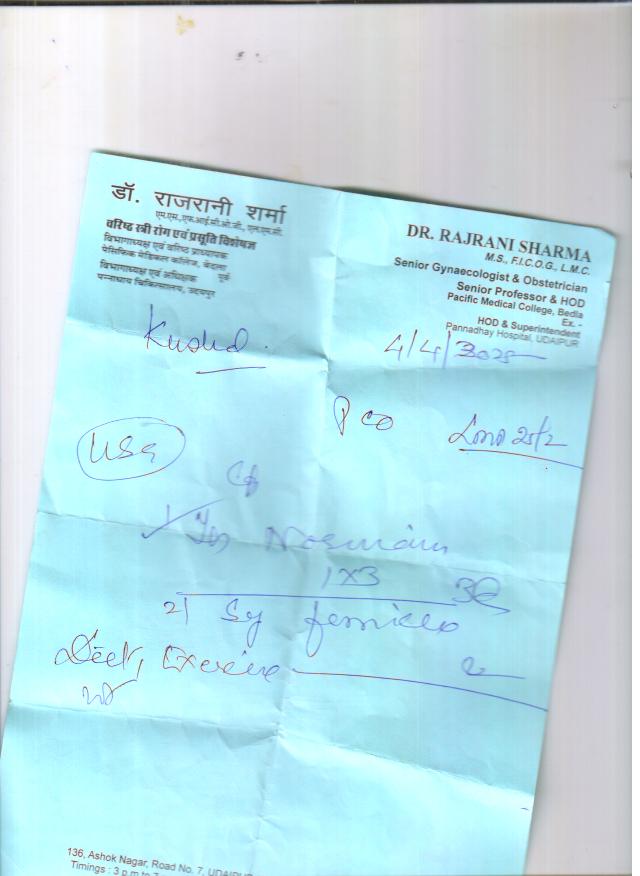 डॉ. राजरानी शर्मा
एम.एस., एफ.आई.सी.ओ.जी., एल.एम.सी.
वरिष्ठ स्त्री रोग एवं प्रसूति विशेषज्ञ
विभागाध्यक्ष एवं वरिष्ठ प्राध्यापक
पेसिफिक मेडिकल कॉलेज, बेदला
पूर्व
विभागाध्यक्ष एवं अधिक्षक
पन्नाधाय चिकित्सालय, उदयपुर
DR. RAJRANI SHARMA
M.S., F.I.C.O.G., L.M.C.
Senior Gynaecologist & Obstetrician
Senior Professor & HOD
Pacific Medical College, Bedla
Ex. -
HOD & Superintendent
Pannadhay Hospital, UDAIPUR
4/4/
PCO
USG
1x3
2) Sy
Diet, Exercise
136, Ashok Nagar, Road No. 7, UDAIPU
Timings : 3 p.m to 7